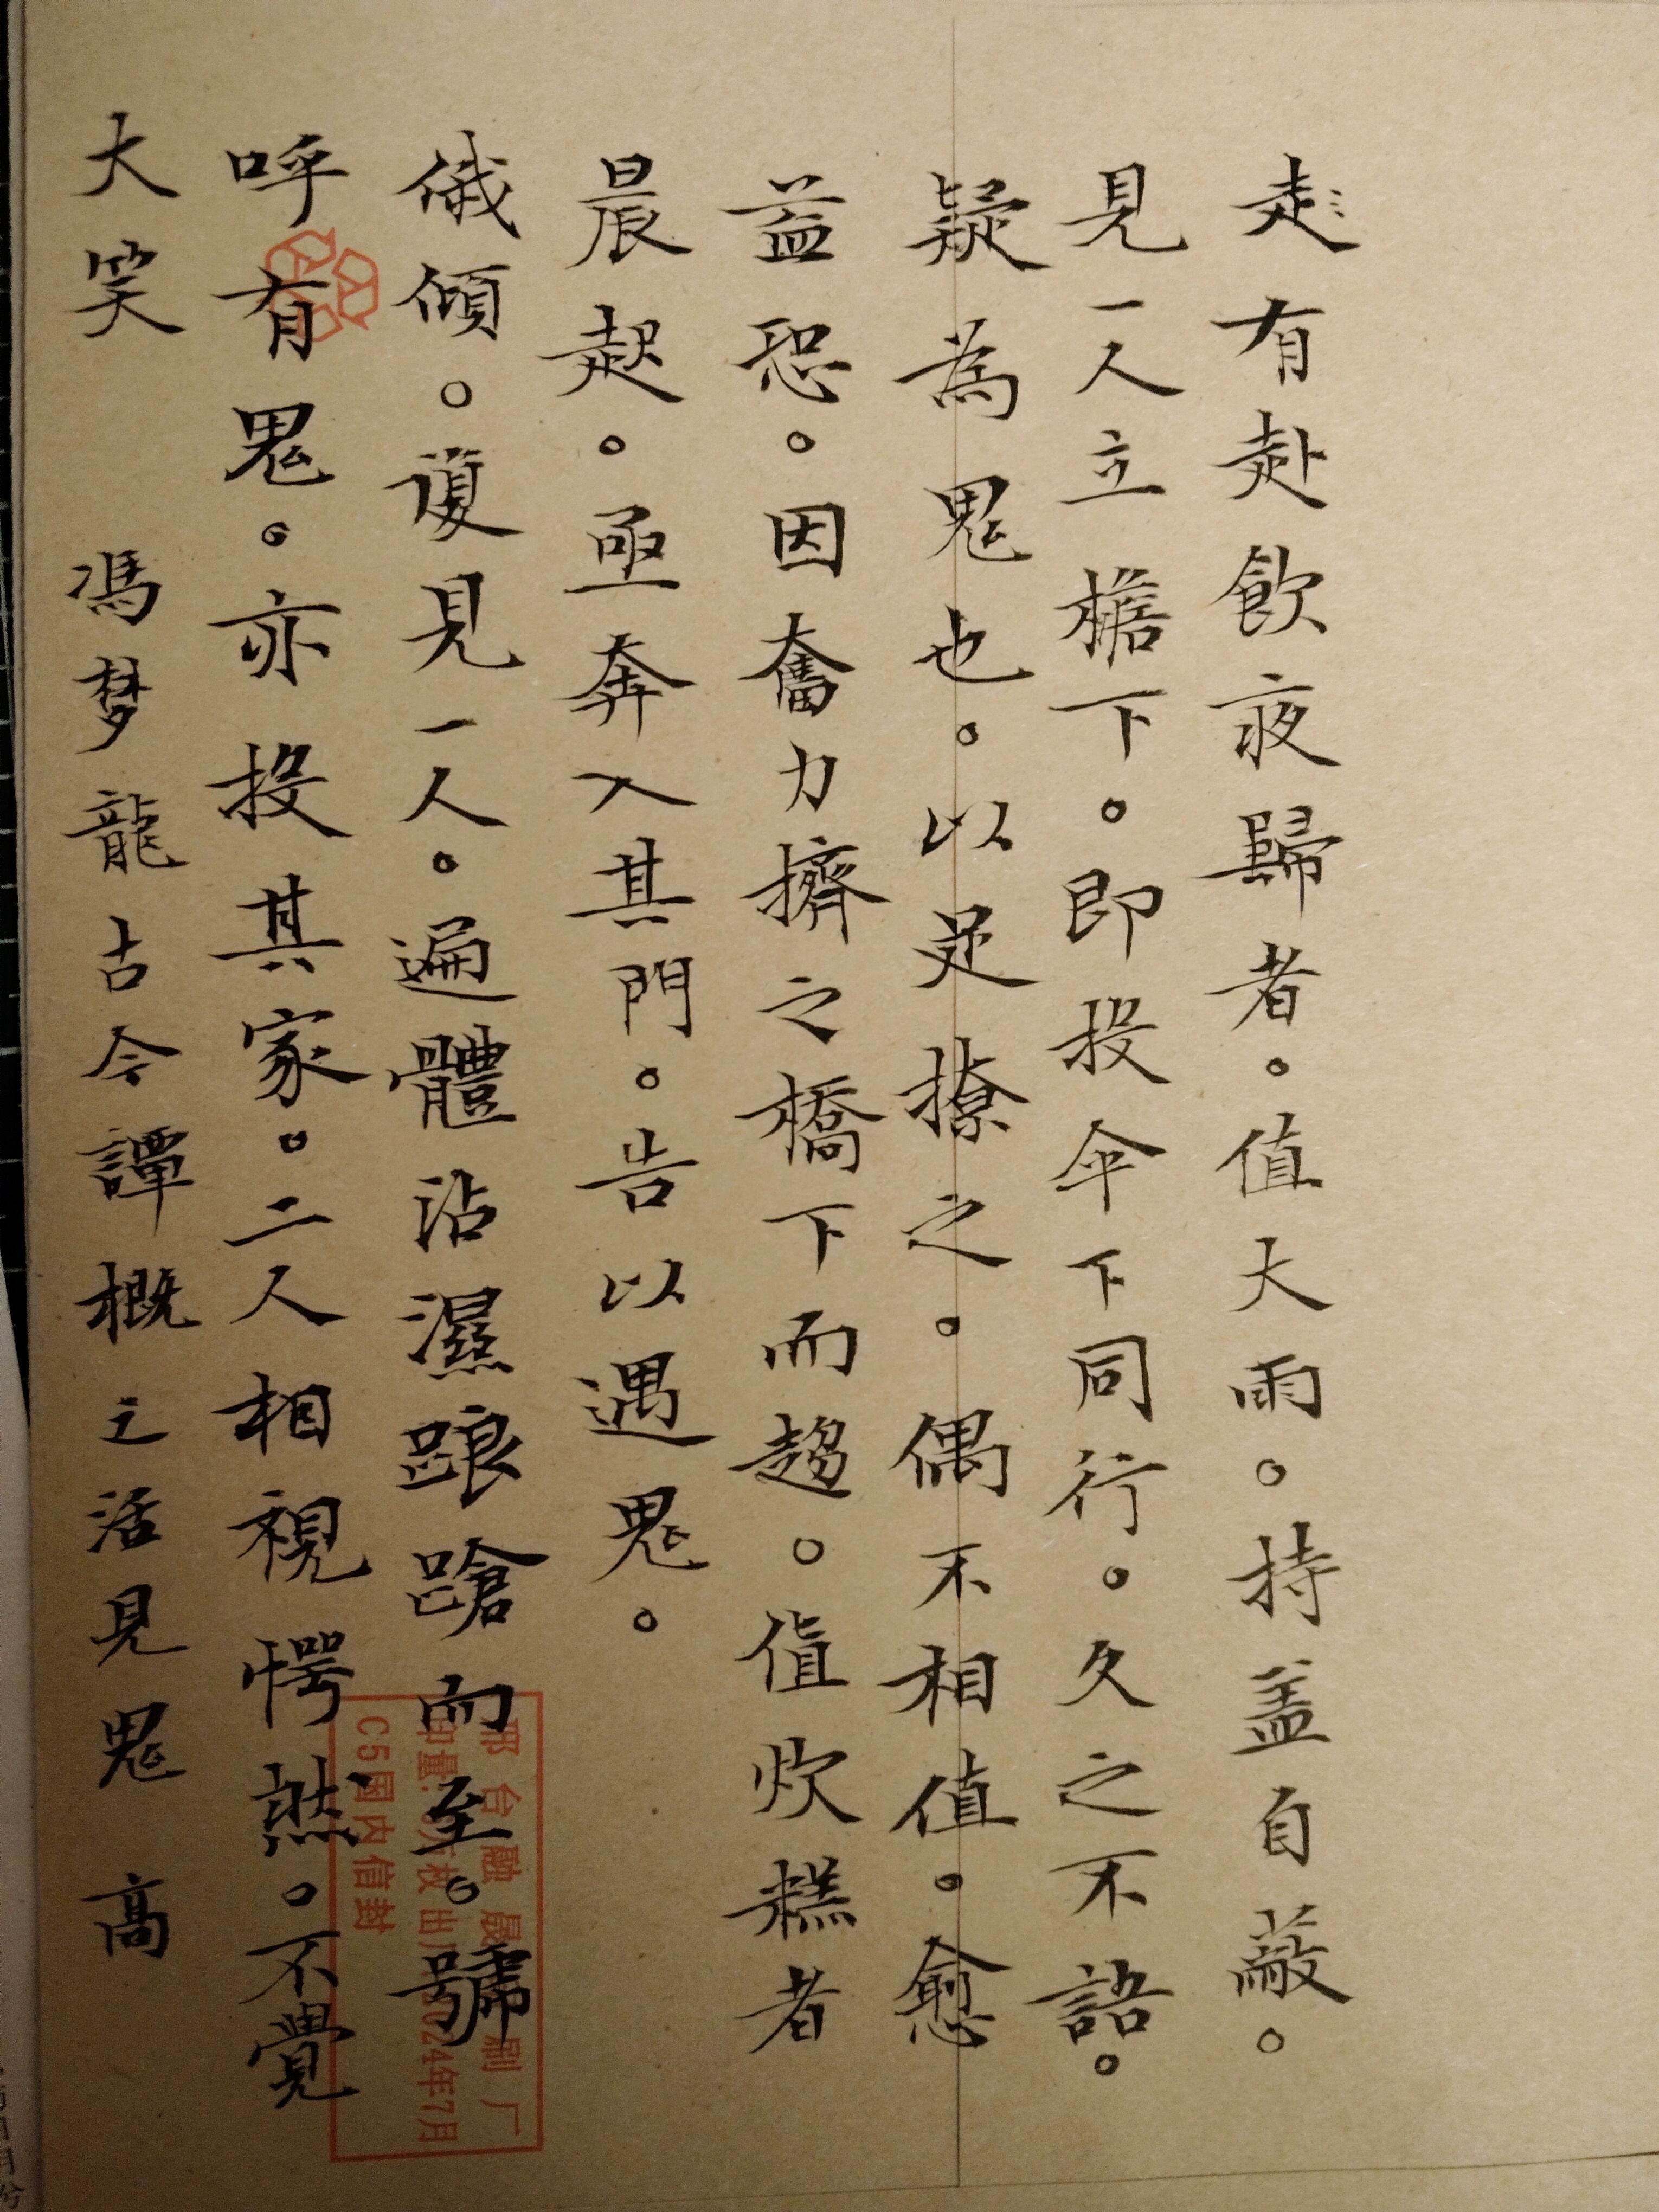 走有赴飲夜歸者。值大雨。持盖自蔽。
見一人立檐下。即投伞下同行。久之不語。
疑為鬼也。以足撩之。偶不相值。愈
益恐。因奮力擠之橋下而趨。值炊糕者
晨起。亟奔入其門。告以遇鬼。
俄傾。復見一人。遍體沾濕踉蹌而至。號
呼有鬼。亦投其家。二人相視愕然。不覺
大笑 馮梦龍古今譚概之活見鬼 高
C5国内信封